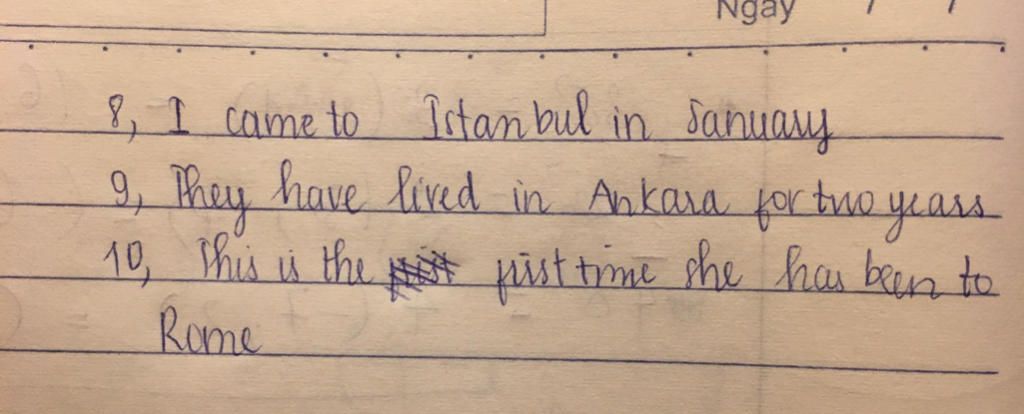 Ngày / /
8, I came to Istanbul in January
9, They have lived in Ankara for two years
10, This is the first time she has been to
Rome